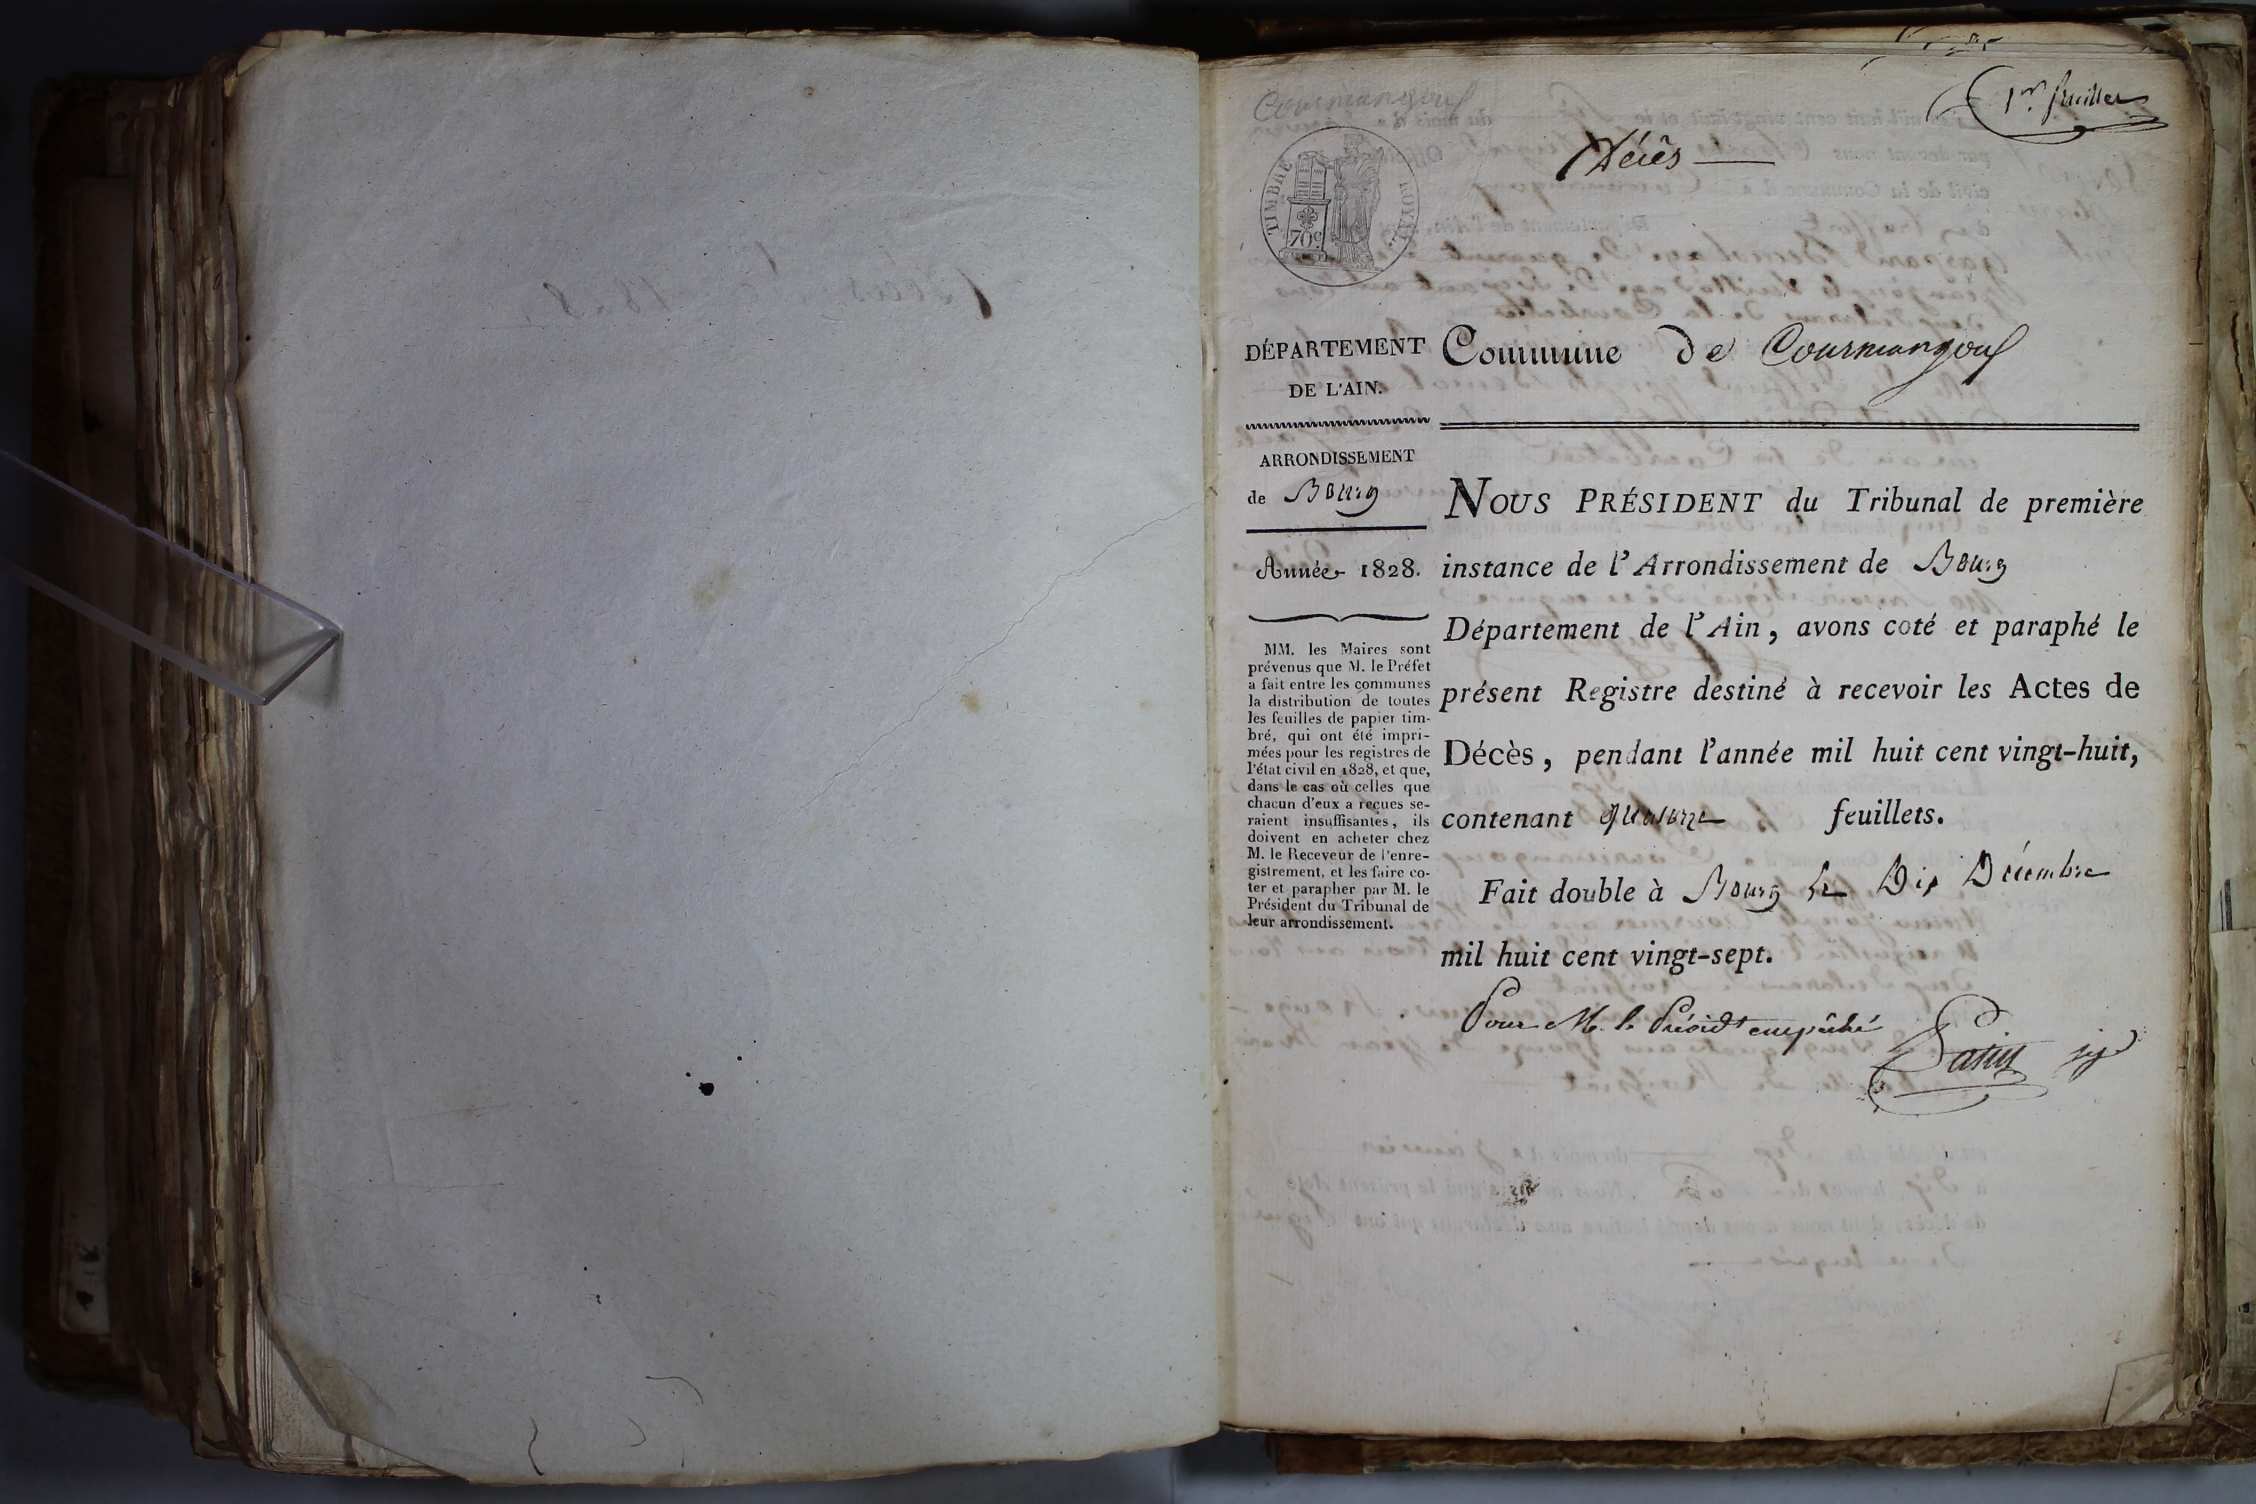 Courmangoux
1er feuillet
Décès
TIMBRE ROYAL
70c
DÉPARTEMENT
DE L'AIN.
ARRONDISSEMENT
de Bourg
Année 1828.
MM. les Maires sont
prévenus que M. le Préfet
a fait entre les communes
la distribution de toutes
les feuilles de papier tim-
bré, qui ont été impri-
mées pour les registres de
l'état civil en 1828, et que,
dans le cas où celles que
chacun d'eux a reçues se-
raient insuffisantes, ils
doivent en acheter chez
M. le Receveur de l'enre-
gistrement, et les faire co-
ter et parapher par M. le
Président du Tribunal de
leur arrondissement.
Commune de Courmangoux
NOUS PRÉSIDENT du Tribunal de première
instance de l'Arrondissement de Bourg
Département de l'Ain, avons coté et paraphé le
présent Registre destiné à recevoir les Actes de
Décès, pendant l'année mil huit cent vingt-huit,
contenant quatorze feuillets.
Fait double à Bourg le Dix Décembre
mil huit cent vingt-sept.
Pour M. le Présidt empêché